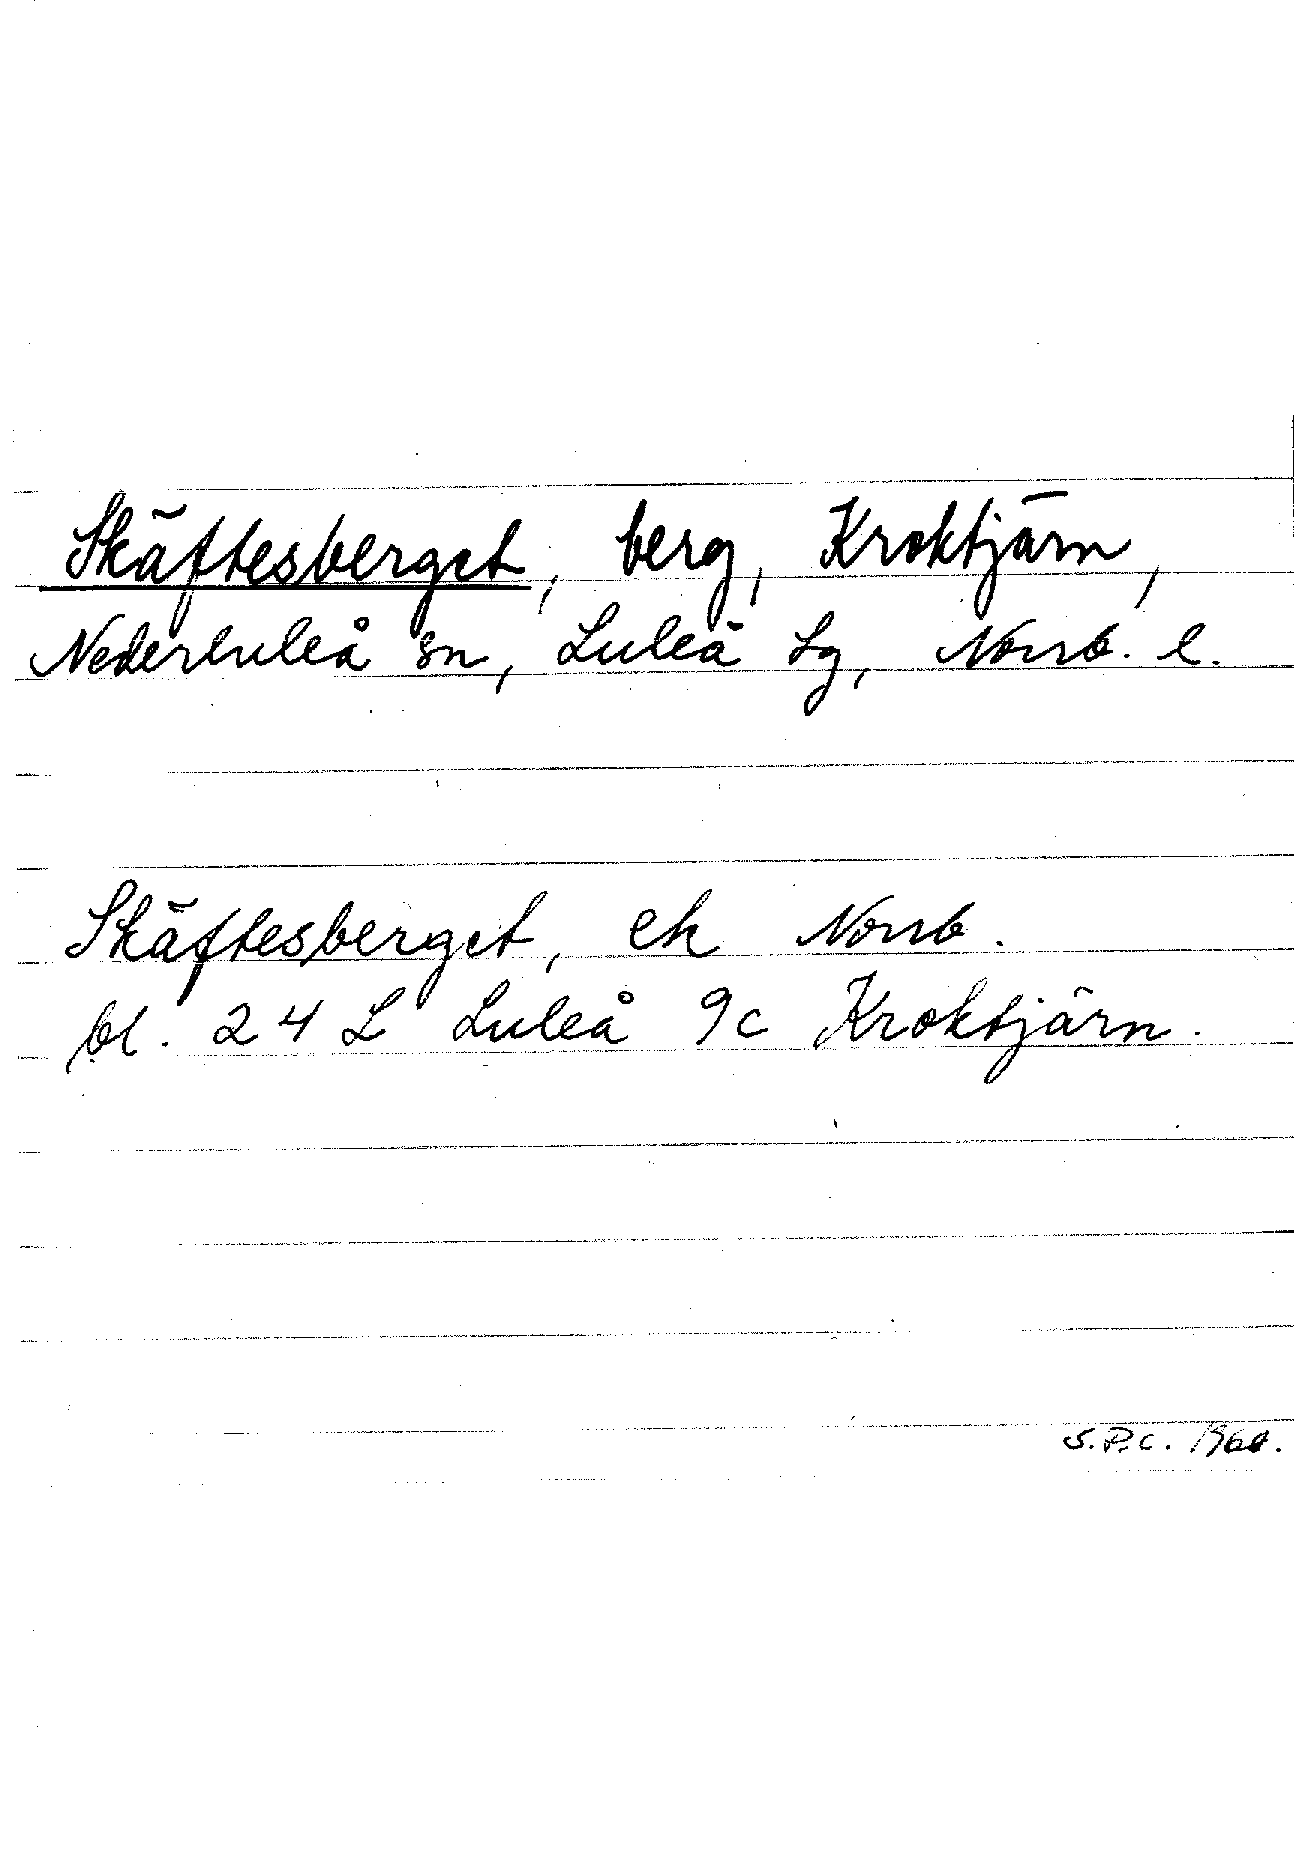 Skäftesberget, berg, Kroktjärn,
Nederluleå sn, Luleå tg, Norrb. l.
Skäftesberget, ek Norrb.
bl. 24 L Luleå 9c Kroktjärn.
S.P.C.